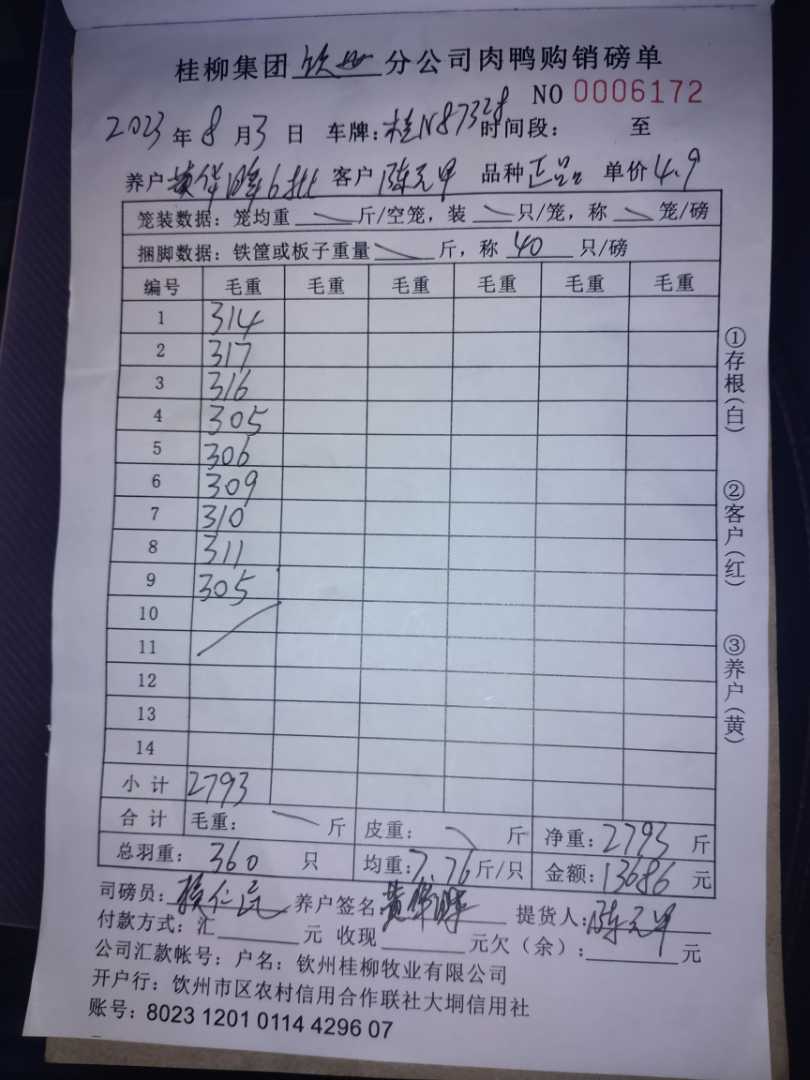 桂柳集团 钦州 分公司肉鸭购销磅单
NO 0006172
2023 年 8 月 3 日 车牌：桂N87328 时间段： 至
养户 黄华 6批 客户 陈元甲 品种 正品 单价 4.9
笼装数据：笼均重 斤/空笼，装 只/笼，称 笼/磅
捆脚数据：铁筐或板子重量 斤，称 40 只/磅
编号 毛重 毛重 毛重 毛重 毛重 毛重
1 314
2 317
3 316
4 305
5 306
6 309
7 310
8 311
9 305
10
11
12
13
14
小 计 2793
合 计 毛重： 斤 皮重： 斤 净重：2793 斤
总羽重： 360 只 均重：7.76 斤/只 金额：13686 元
司磅员： 养户签名：黄华 提货人：陈元甲
付款方式：汇 元 收现 元欠（余）： 元
公司汇款帐号：户名：钦州桂柳牧业有限公司
开户行：钦州市区农村信用合作联社大垌信用社
账号：8023 1201 0114 4296 07
①存根（白）
②客户（红）
③养户（黄）